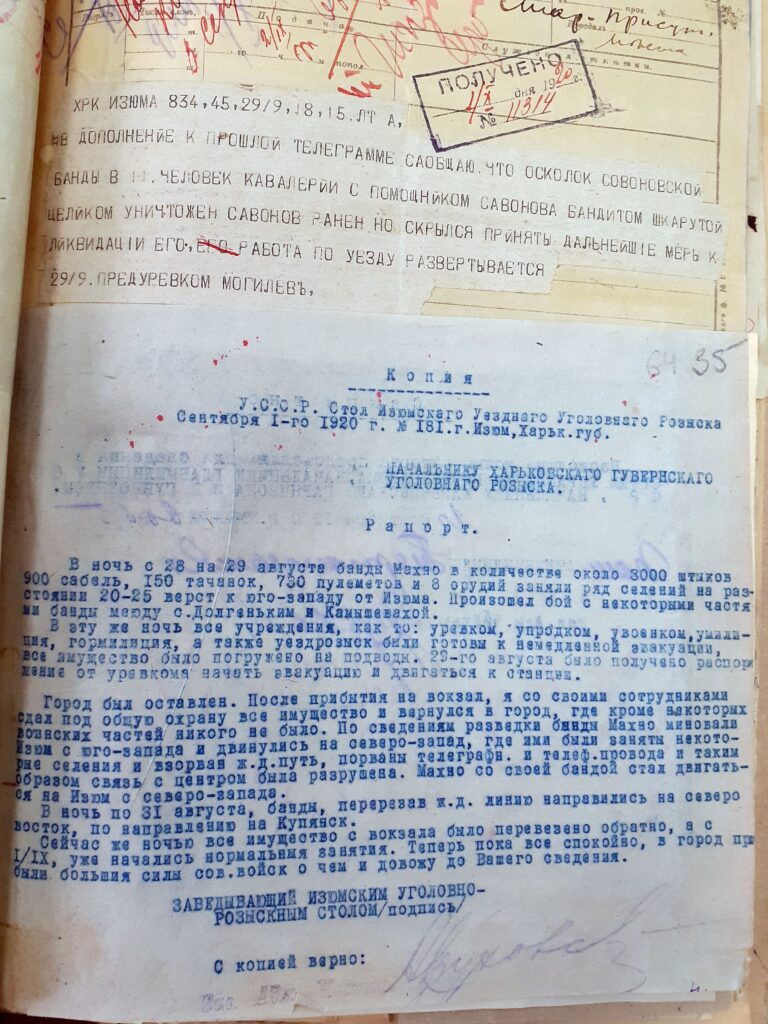 ПОЛУЧЕНО
дня 1920 г.
№ 11314
ХРК ИЗЮМА 834,45,29/9,18,15.ЛТ А,
В ДОПОЛНЕНИЕ К ПРОШЛОЙ ТЕЛЕГРАММЕ САОБЩАЮ.ЧТО ОСКОЛОК СОВОНОВСКОЙ
БАНДЫ В ЧЕЛОВЕК КАВАЛЕРИИ С ПОМОЩНИКОМ САВОНОВА БАНДИТОМ ШКАРУТОЙ
ЦЕЛИКОМ УНИЧТОЖЕН САВОНОВ РАНЕН НО СКРЫЛСЯ ПРИНЯТЫ ДАЛЬНЕЙШIЕ МЕРЫ К
ЛИКВИДАЦIИ ЕГО, ЕГО РАБОТА ПО УЕЗДУ РАЗВЕРТЫВАЕТСЯ
29/9.ПРЕДУРЕВКОМ МОГИЛЕВЪ,
64 35
Копия
У.С.С.Р. Стол Изюмскаго Уезднаго Уголовнаго Розыска
Сентября I-го 1920 г. № 181.г.Изюм,Харьк.губ.
НАЧАЛЬНИКУ ХАРЬКОВСКАГО ГУБЕРНСКАГО
УГОЛОВНАГО РОЗЫСКА.
Рапорт.
В ночь с 28 на 29 августа банды Махно в количестве около 3000 штыков
900 сабель, 150 тачанок, 750 пулеметов и 8 орудий заняли ряд селений на раз-
стоянии 20-25 верст к юго-западу от Изюма. Произошел бой с некоторыми частя
ми банды между с.Долгеньким и Камышевахой.
В эту же ночь все учреждения, как то: уревком, упродком, увоенком,умили-
ция, гормилиция, а также уездрозыск были готовы к немедленной эвакуации,
все имущество было погружено на подводы. 29-го августа было получено распоря
жение от уревкома начать эвакуацию и двигаться к станции.
Город был оставлен. После прибытия на вокзал, я со своими сотрудниками
сдал под общую охрану все имущество и вернулся в город, где кроме некоторых
воинских частей никого не было. По сведениям разведки банды Махно миновали
Изюм с юго-запада и двинулись на северо-запад, где ими были заняты некото-
рые селения и взорван ж.д.путь, порваны телеграфн. и телеф.провода и таким
образом связь с центром была разрушена. Махно со своей бандой стал двигать-
ся на Изюм с северо-запада.
В ночь по 31 августа, банды, перерезав ж.д. линию направились на северо
восток, по направлению на Купянск.
Сейчас же ночью все имущество с вокзала было перевезено обратно, а с
I/IX, уже начались нормальныя занятия. Теперь пока все спокойно, в город при
были большия силы сов.войск о чем и довожу до Вашего сведения.
ЗАВЕДЫВАЮЩИЙ ИЗЮМСКИМ УГОЛОВНО-
РОЗЫСКНЫМ СТОЛОМ/подпись/
С копией верно: